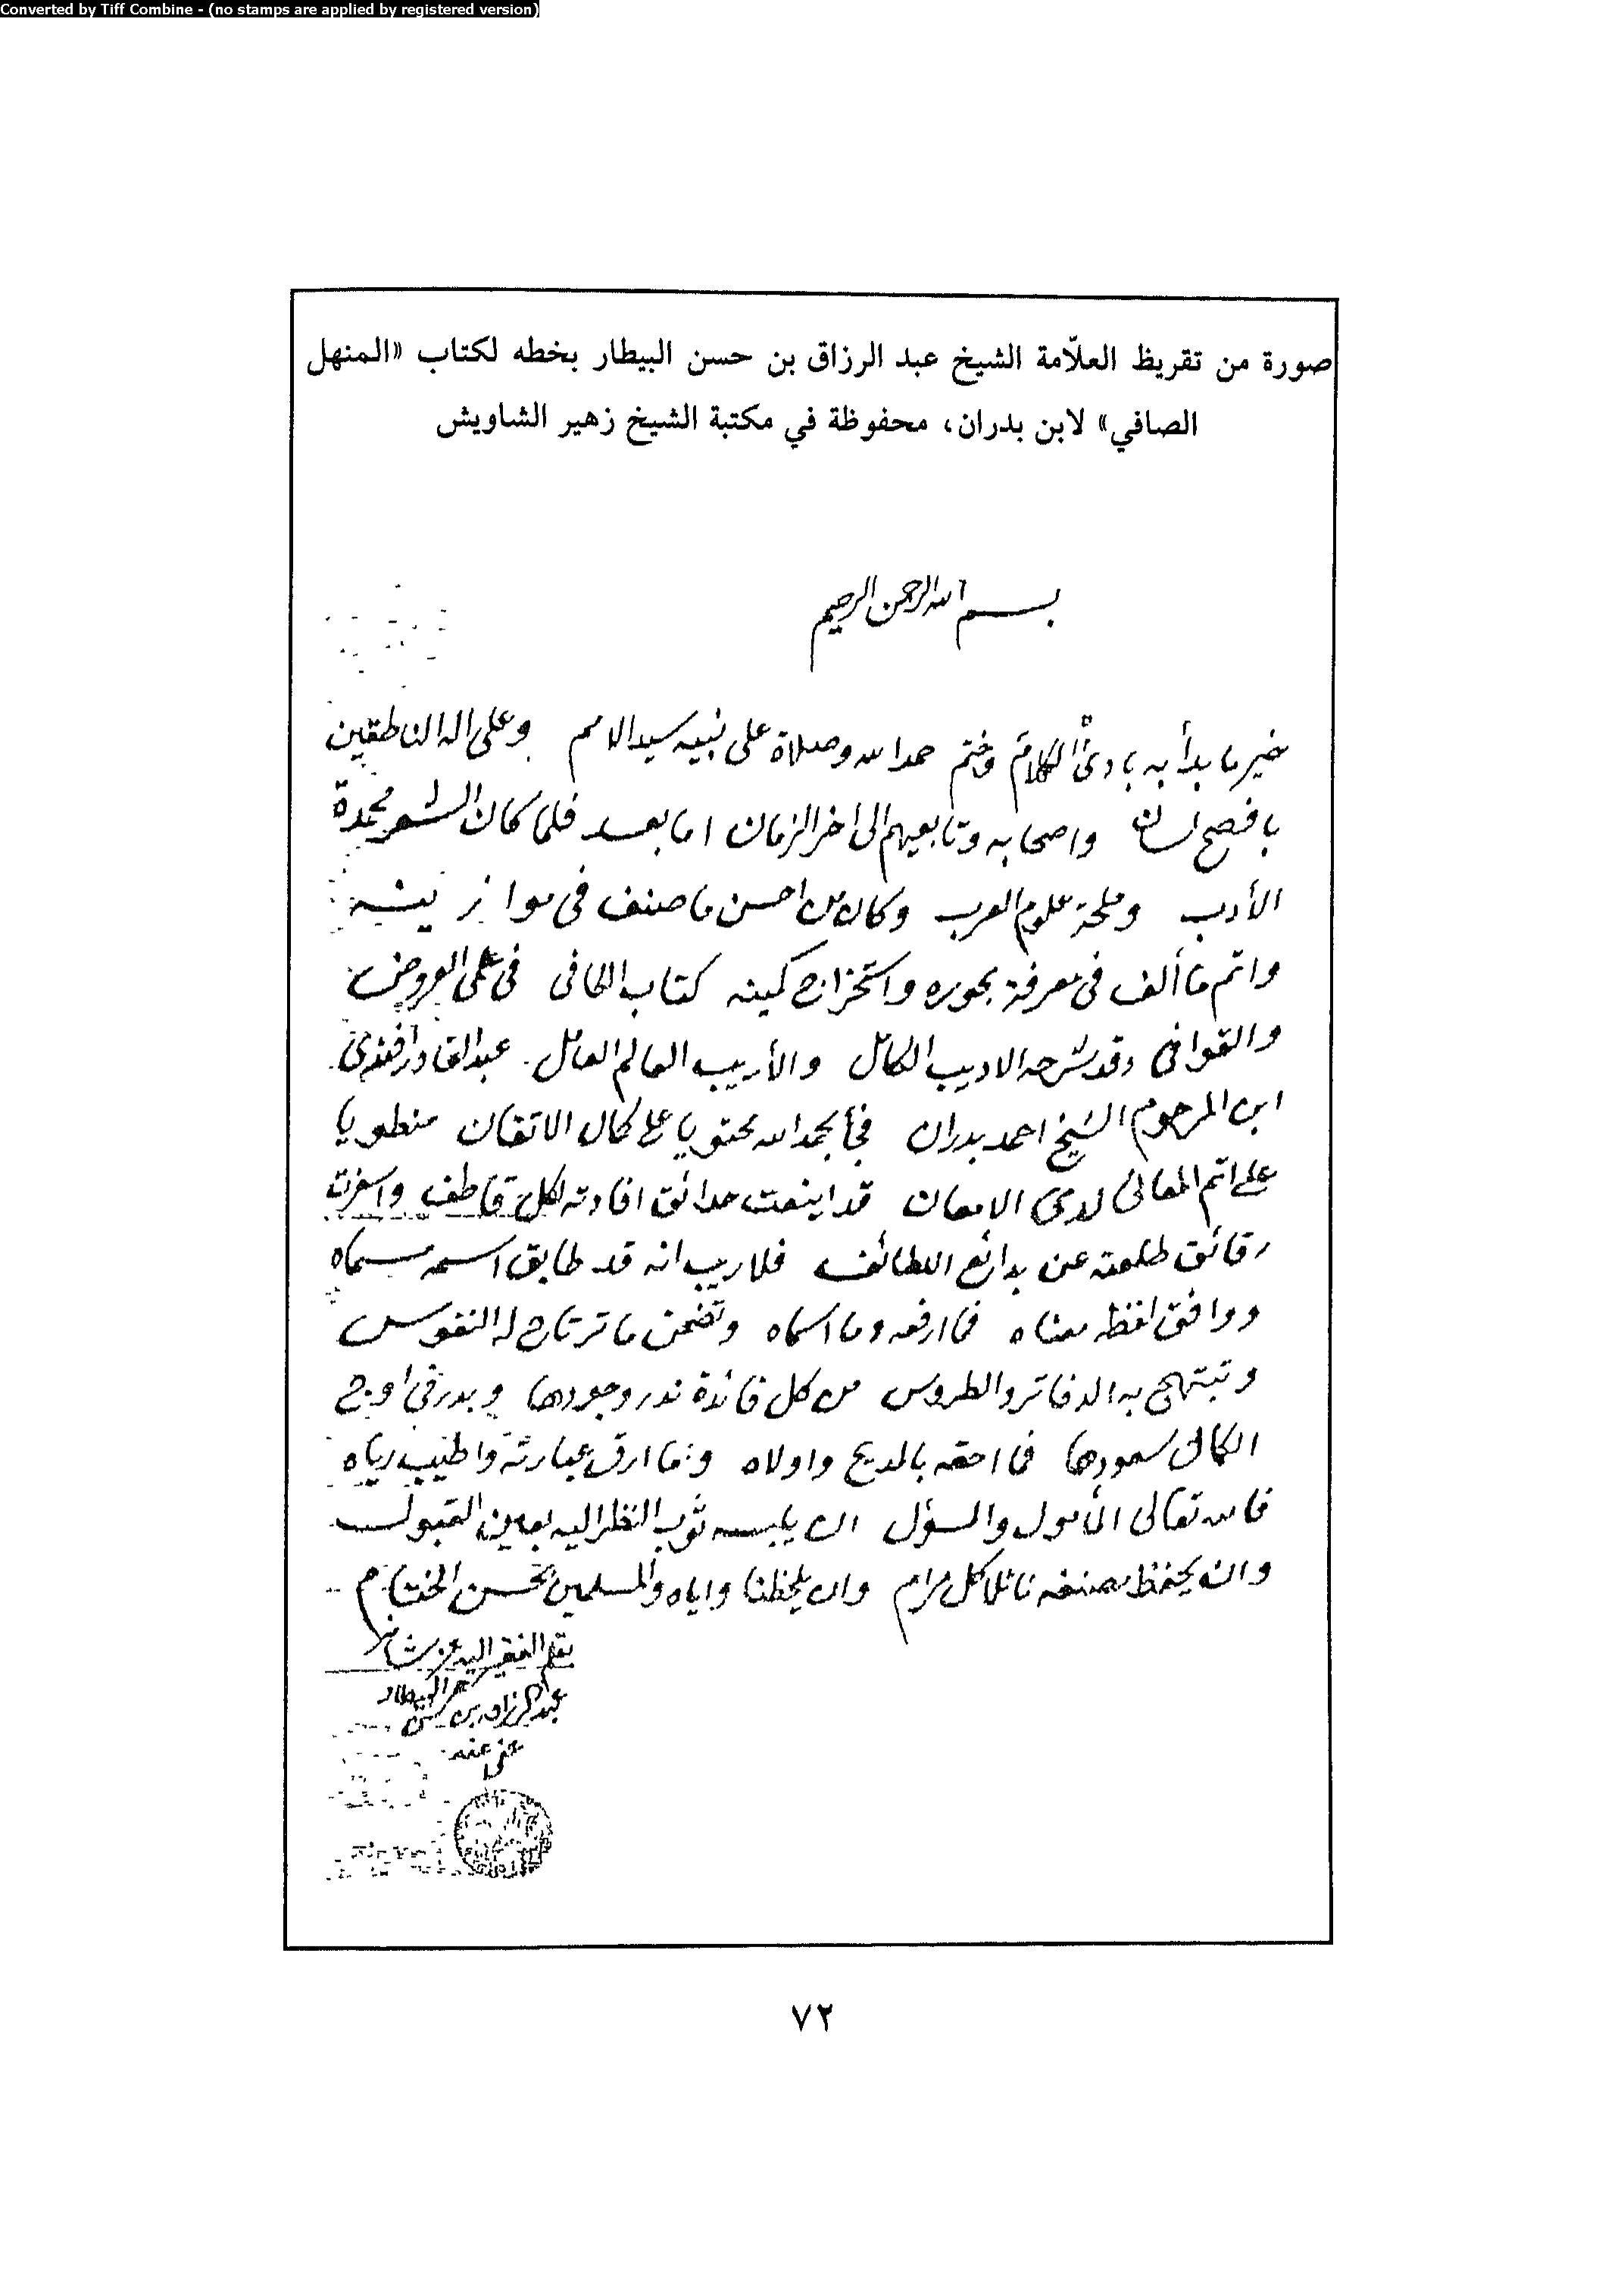 Converted by Tiff Combine - (no stamps are applied by registered version)
صورة من تقريظ العلّامة الشيخ عبد الرزاق بن حسن البيطار بخطه لكتاب «المنهل
الصافي» لابن بدران، محفوظة في مكتبة الشيخ زهير الشاويش
بسم الله الرحمن الرحيم
خير ما بدأ به بادئ الكلام وختم حمد الله وصلاة على نبيه سيد الامم وعلى اله الناطقين
بافصح لسان واصحابه وتابعيهم الى اخر الزمان اما بعد فلما كان الشعر محمدة
الأدب وملحة علوم العرب وكان من احسن ما صنف فى موازينه
واتم ما ألف فى معرفة بحوره واستخراج كمينه كتاب الكافى فى علمى العروض
والقوافى وقد شرحه الاديب الكامل والأريب العالم العامل عبد القادر افندى
ابن المرحوم الشيخ احمد بدران فجأ بحمد الله محتويا على كمال الاتقان منطويا
على اتم المعانى لدى الامعان قد اينعت حدائق افادته لكل قاطف واسفرت
رقائق طلعته عن بدائع اللطائف فلا ريب انه قد طابق اسمه مسماه
ووافق لفظه معناه فما ارفعه وما اسماه وتضمن ما ترتاح له النفوس
وتبتهج به الدفاتر والطروس من كل فائدة ندر وجودها وبدر فى اوج
الكمال سعودها فما احقه بالمديح واولاه وما ارق عبارته واطيب رياه
فالله تعالى المأمول والمسؤل ان يلبسه ثوب النظر اليه بعين القبول
وان يحفظ مصنفه نائلا كل مرام وان يلحظنا واياه والمسلمين بحسن الختام
بقلم الفقير اليه عز شأنه
عبد الرزاق بن حسن البيطار
عفى عنه
٧٢